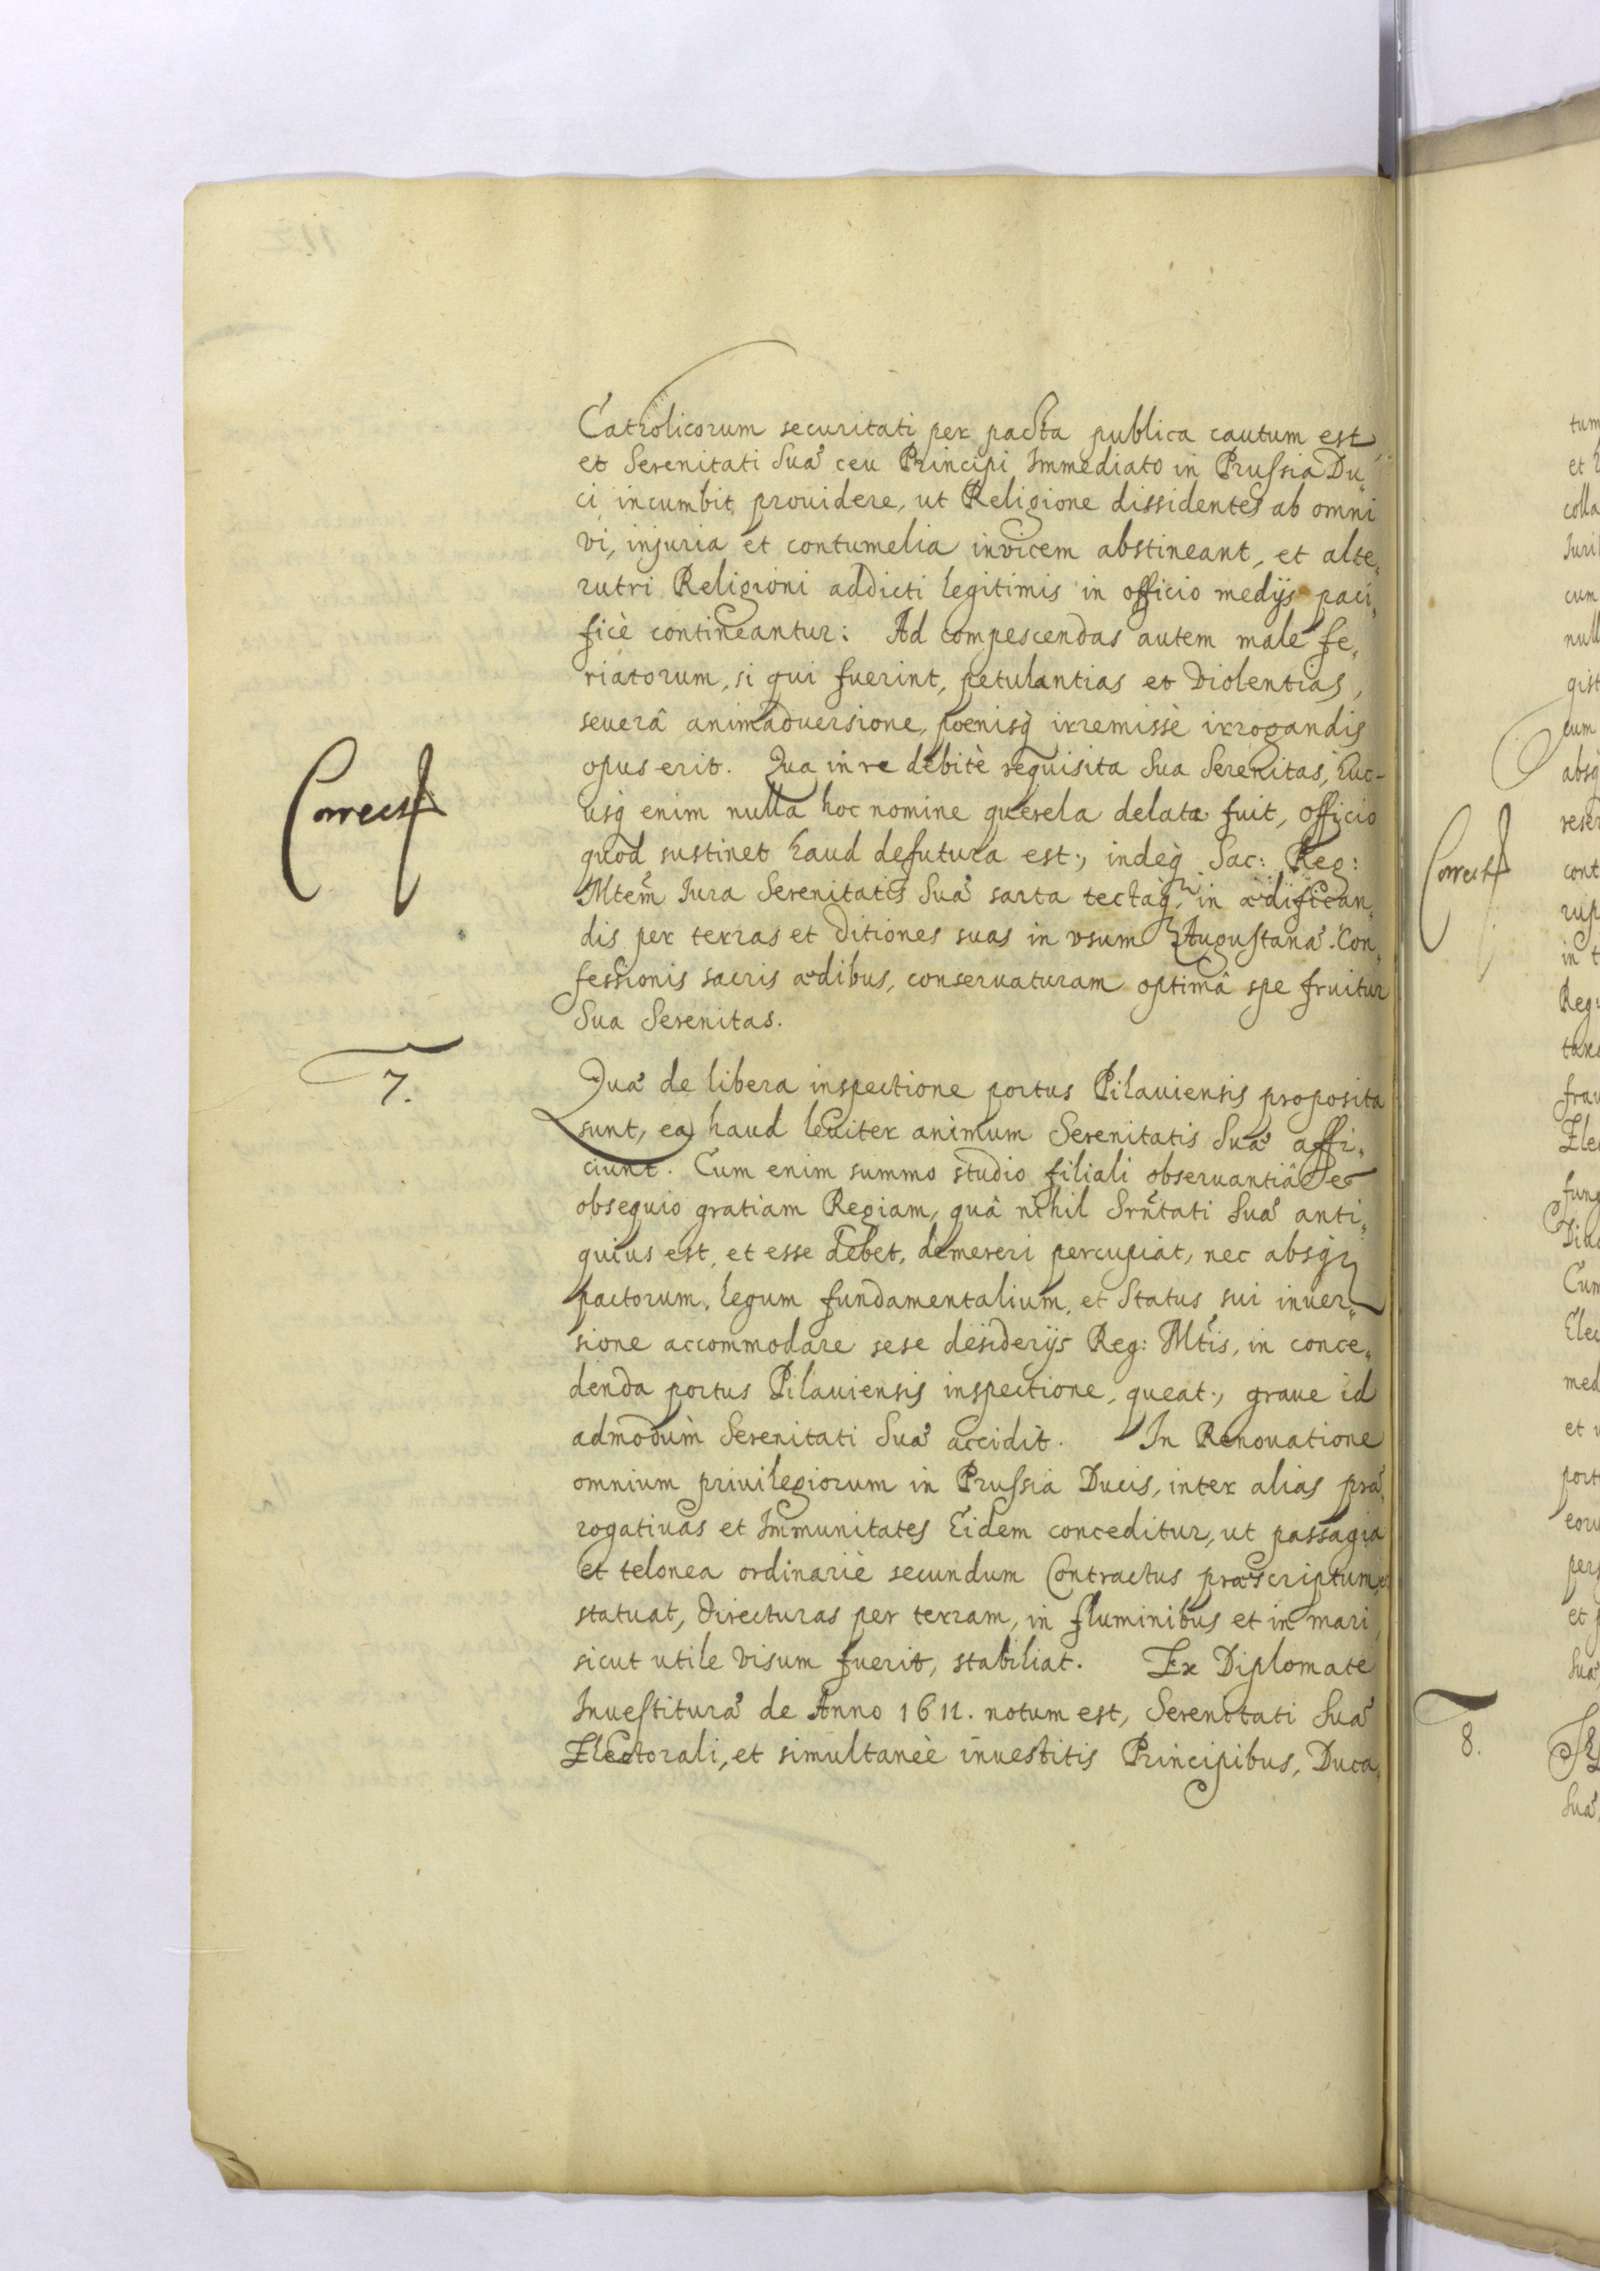 Catholicorum securitati per pacta publica cautum est,
et Serenitati Suæ ceu Principi Immediato in Prussia Du„
ci incumbit prouidere, ut Religione dissidentes ab omni
vi, injuria et contumelia invicem abstineant, et alte„
rutri Religioni addicti legitimis in officio medijs paci„
ficè contineantur: Ad compescendas autem male fe„
riatorum, si qui fuerint, petulantias et violentias,
seuerâ animaduersione, poenisq; irremissè irrogandis
opus erit. Qua in re debitè requisita Sua Serenitas, huc-
usq; enim nulla hoc nomine querela delata fuit, officio
quod sustinet haud defutura est; indeq; Sac: Reg:
Mtem Jura Serenitatis Suæ sarta tectaq; in ædifican„
dis per terras et ditiones suas in vsum Augustanæ Con„
fessionis sacris ædibus, conseruaturam optimâ spe fruitur
Sua Serenitas.
Correct
7.
Quæ de libera inspectione portus Pilauiensis proposita
sunt, ea haud leuiter animum Serenitatis Suæ affi„
ciunt. Cum enim summo studio filiali obseruantiâ et
obsequio gratiam Regiam, quâ nihil Srntati Suæ anti„
quius est, et esse debet, demereri percupiat, nec absq;
pactorum, legum fundamentalium, et Status sui inuer„
sione accommodare sese desiderijs Reg: Mtis, in conce„
denda portus Pilauiensis inspectione, queat; graue id
admodùm Serenitati Suæ accidit. In Renouatione
omnium priuilegiorum in Prussia Ducis, inter alias præ„
rogatiuas et Immunitates Eidem conceditur, ut passagia
et telonea ordinariè secundum Contractus præscriptum
statuat, directuras per terram, in fluminibus et in mari,
sicut utile visum fuerit, stabiliat. Ex Diplomate
Inuestituræ de Anno 1611. notum est, Serenitati Suæ
Electorali, et simultaneè inuestitis Principibus, Duca„
Correct
8.